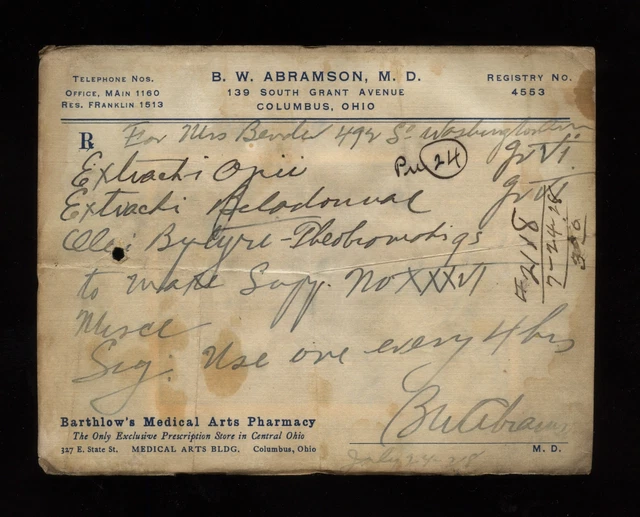 TELEPHONE NOS.
OFFICE, MAIN 1160
RES. FRANKLIN 1513
B. W. ABRAMSON, M. D.
139 SOUTH GRANT AVENUE
COLUMBUS, OHIO
REGISTRY NO.
4553
℞
For Mrs Bender 492 So Washington
Extracti Opii gr vi
24
Extracti Beladonnae gr vi
Olei Bytyri-Theobromatis qs
to make Supp. No XXXVI
Misce
Sig: Use one every 4 hrs
#2118
7-24-28
BWAbramson
M. D.
July 24 28
Barthlow's Medical Arts Pharmacy
The Only Exclusive Prescription Store in Central Ohio
327 E. State St. MEDICAL ARTS BLDG. Columbus, Ohio